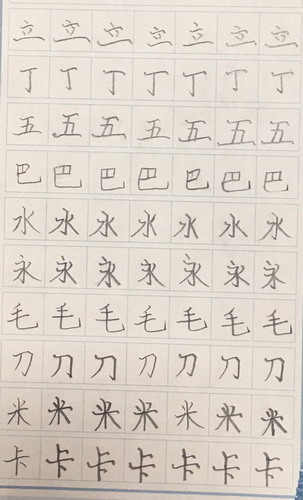 立立立立立立立
丁丁丁丁丁丁丁
五五五五五五五
巴巴巴巴巴巴巴
水水水水水水水
永永永永永永永
毛毛毛毛毛毛毛
刀刀刀刀刀刀刀
米米米米米米米
卡卡卡卡卡卡卡